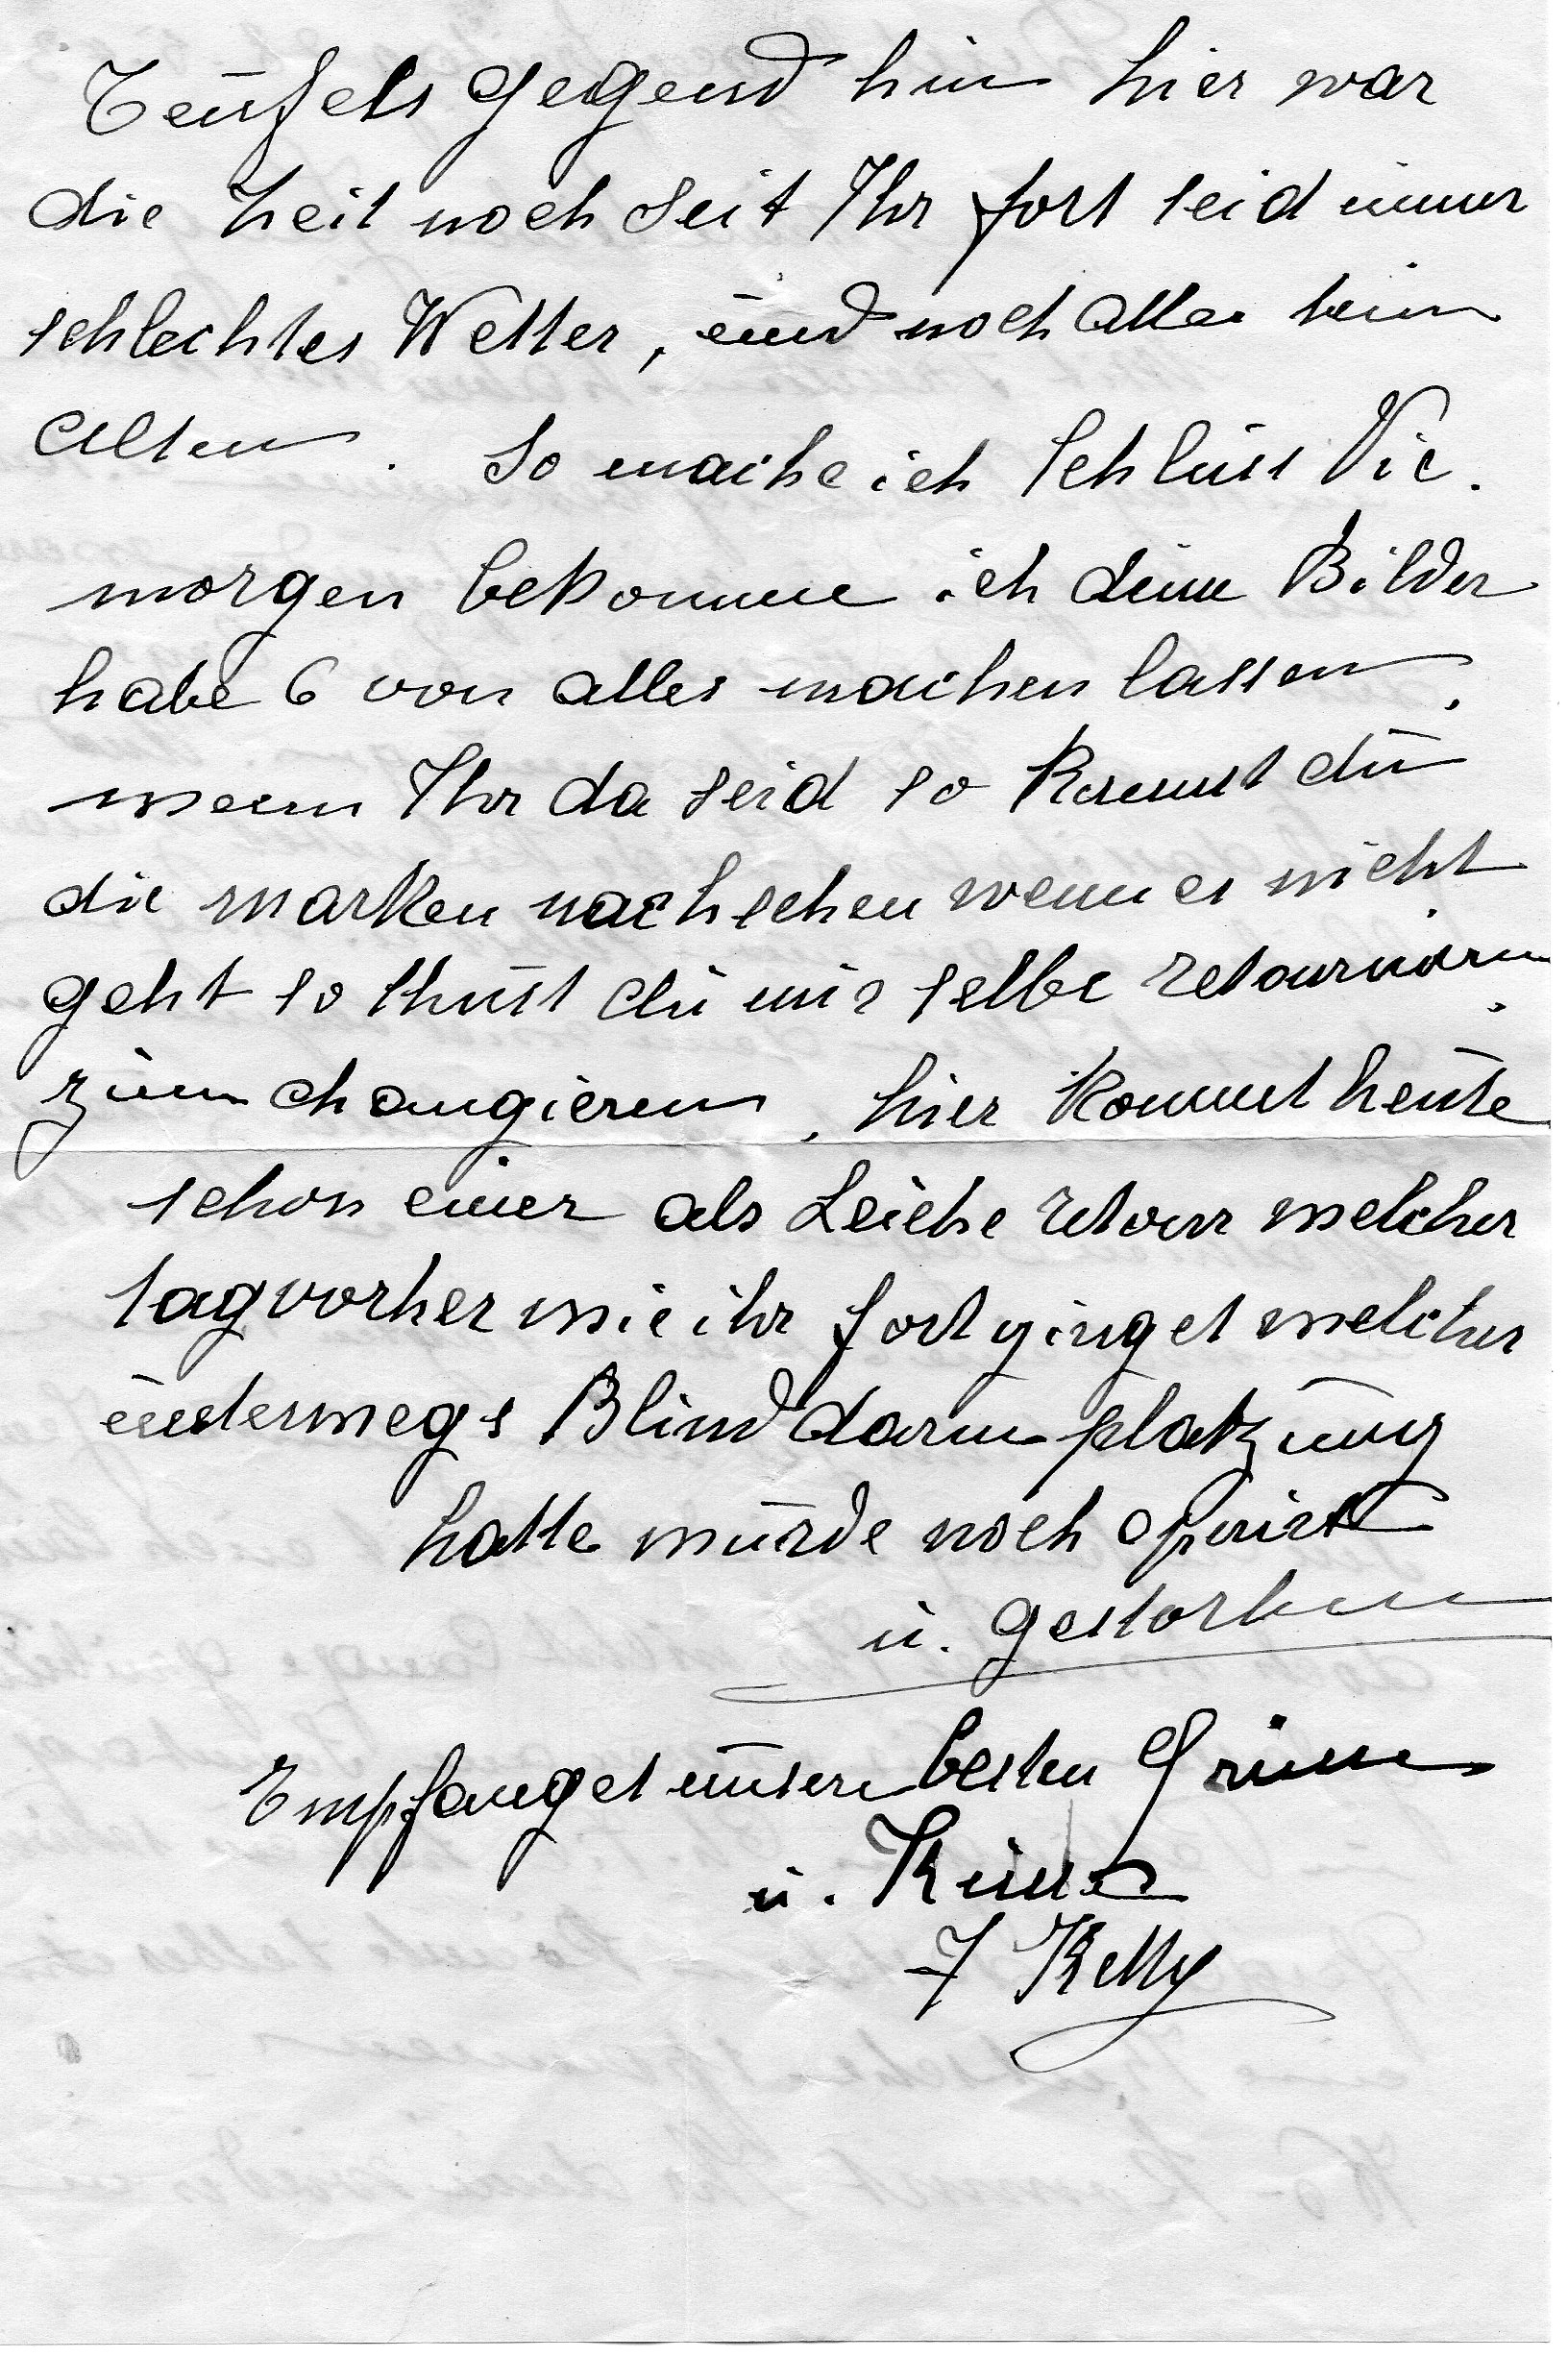 Teufels gegend hin hier war
die Zeit noch seit Ihr fort seid immer
schlechtes Wetter, und noch alles beim
Alten. So mache ich Schluss Vic.
morgen bekomme ich deine Bilder
habe 6 von alles machen lassen.
wenn Ihr da seid so kannst du
die marken nachsehen wenn es nicht
geht so thust du mir selbe retournieren
zum changieren, hier kommt heute
schon einer als Leiche retour welcher
tag vorher wie ihr fort ginget welcher
unterwegs Blinddarm platzung
hatte wurde noch operirt
u. gestorben
Empfanget unsere besten Grüsse
u. Küsse
F Ketty